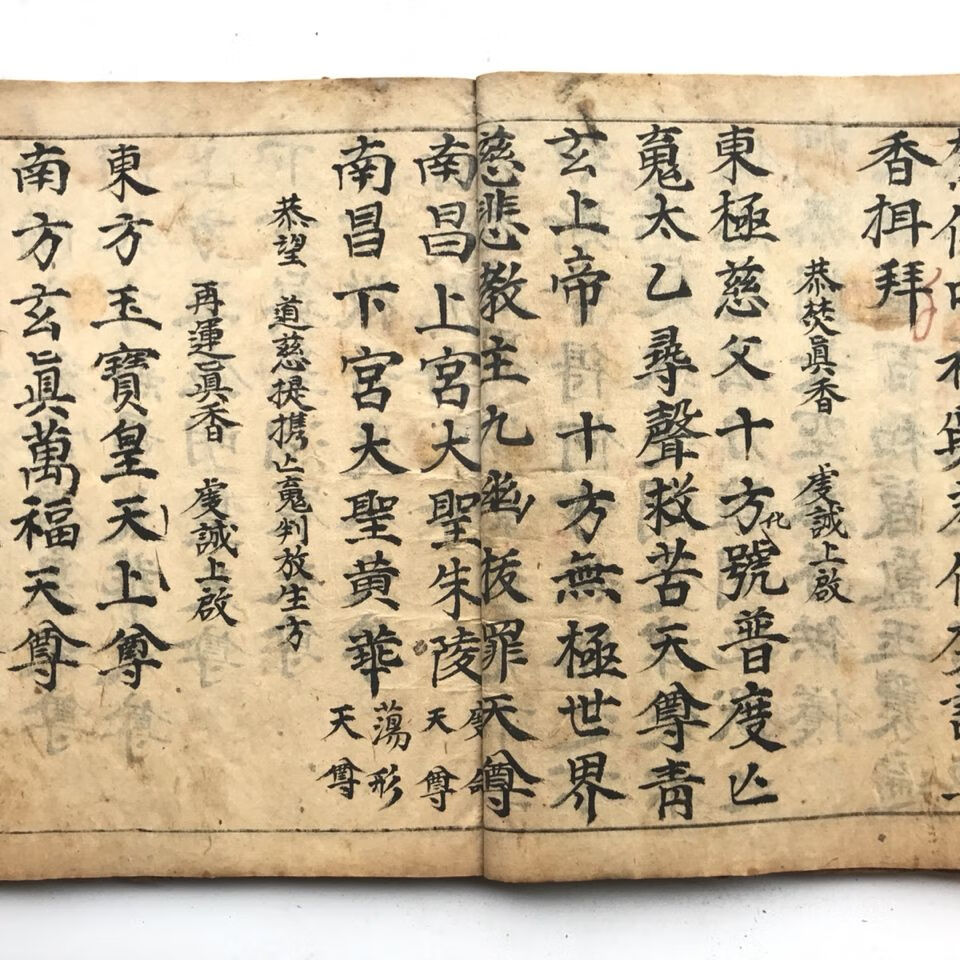 香揖拜
恭焚眞香 虔誠上啟
東極慈父十方化號普度亡
䰟太乙尋聲救苦天尊靑
玄上帝 十方無極世界
慈悲教主九幽拔罪天尊
南昌上宮大聖朱陵度命天尊
南昌下宮大聖黄華蕩形天尊
恭望 道慈提携亡䰟判放生方
再運眞香 虔誠上啟
東方玉寶皇天上尊
南方玄眞萬福天尊